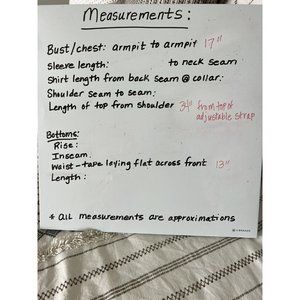 Measurements:
Bust/chest: armpit to armpit 17"
Sleeve length: to neck seam
Shirt length from back seam @ collar:
Shoulder seam to seam:
Length of top from shoulder 34" from top of
adjustable strap
Bottoms:
Rise:
Inseam:
Waist - tape laying flat across front 13"
Length:
* all measurements are approximations